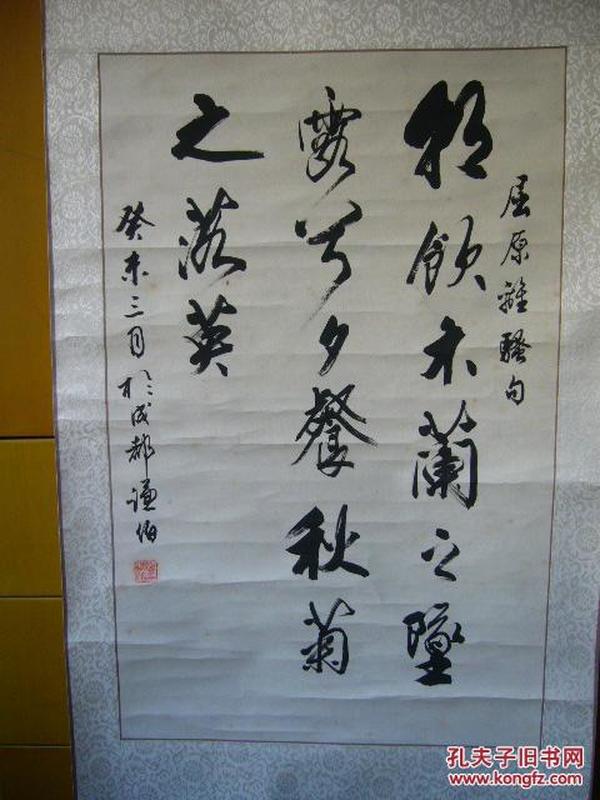 屈原離騷句
朝飲木蘭之墜
露兮夕餐秋菊
之落英
癸未三月於成都謙伯
孔夫子旧书网
www.kongfz.com